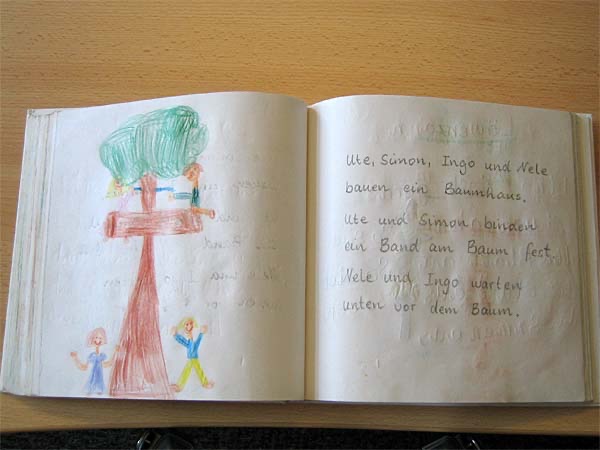 Ute, Simon, Ingo und Nele
bauen ein Baumhaus.
Ute und Simon binden
ein Band am Baum fest.
Nele und Ingo warten
unten vor dem Baum.